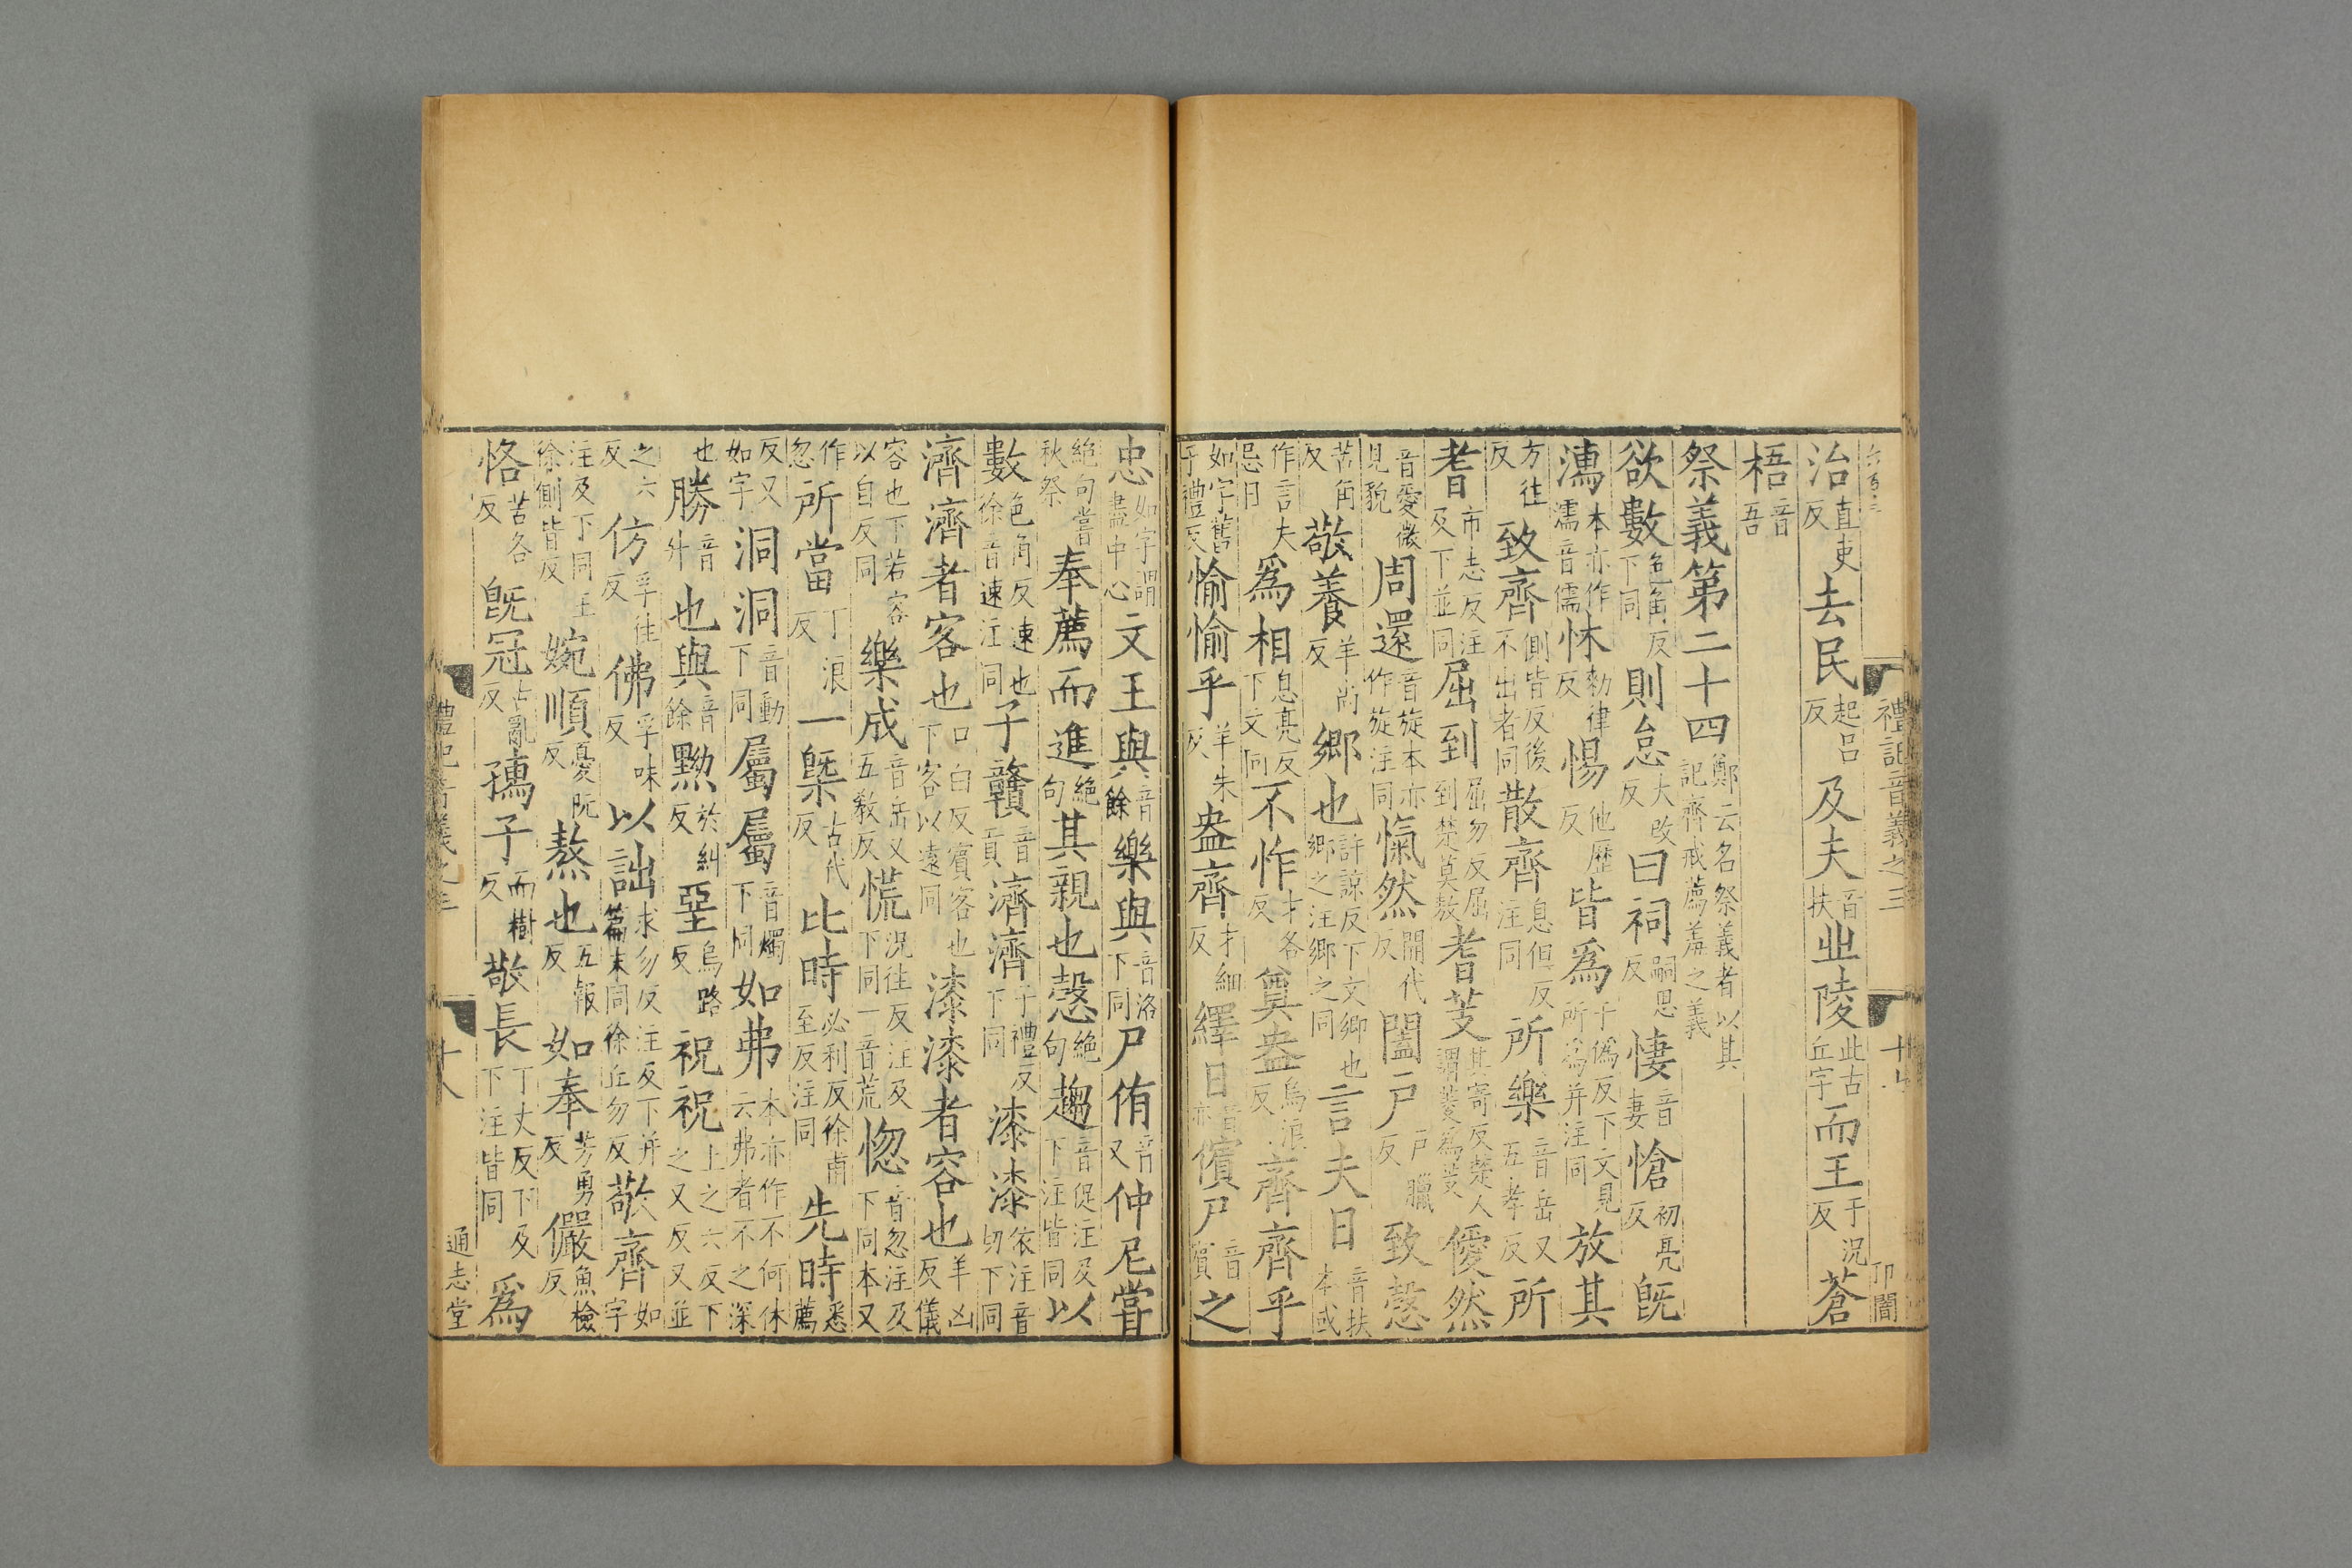 治直吏反去民起呂反及夫音扶丠陵此古丘字而王于況反蒼
梧音吾
祭義第二十四鄭云名祭義者以其記齊戒薦羞之義
欲數色角反下同則怠大改反曰祠嗣思反悽音妻愴初亮反旣
濡本亦作濡音儒怵勑律反惕他歷反皆爲于僞反下文見所爲并注同放其
方往反致齊側皆反後不出者同散齊息但反注同所樂音岳又五孝反所
耆市志反注及下並同屈到屈勿反屈到楚莫敖耆芰其寄反楚人謂菱爲芰僾然
音愛微見貌周還音旋本亦作旋注同愾然開代反闔戸戸臘反致慤
苦角反敬養羊尚反鄉也許諒反下文鄉也鄉之注鄉之同言夫日音扶本或
作言夫忌日爲相息亮反下文同不怍才各反奠盎烏浪反齊齊乎
如字舊子禮反愉愉乎羊朱反盎齊才細反繹日音亦儐尸音賓之
禮記音義之三
十七
忠如字謂盡中心文王與音餘樂與音洛下同尸侑音又仲尼嘗
絕句嘗秋祭奉薦而進絕句其親也慤絕句趨音促注及下注皆同以
數色角反速也徐音速注同子贛音貢濟濟子禮反下同漆漆依注音切下同
濟濟者客也口白反賓客也下客以遠同漆漆者容也羊凶反儀
容也下若容以自反同樂成音岳又五敎反慌況往反注及下同一音荒惚音忽注及下同本又
作忽所當丁浪反一槩古代反比時必利反徐甫至反注同先時悉薦
反又如字洞洞音動下同屬屬音燭下同如弗本亦作不何休云弗者不之深
也勝音升也與音餘黝於糾反堊烏路反祝祝上之六反下之又反又並
之六反仿孚往反佛孚味反以詘求勿反注反下并篇末同徐丘勿反敬齊如字
注及下同王徐側皆反婉順憂阮反熬也五報反如奉芳勇反儼魚檢反
恪苦各反旣冠古亂反孺子而樹反敬長丁丈反下及下注皆同爲
十八
通志堂